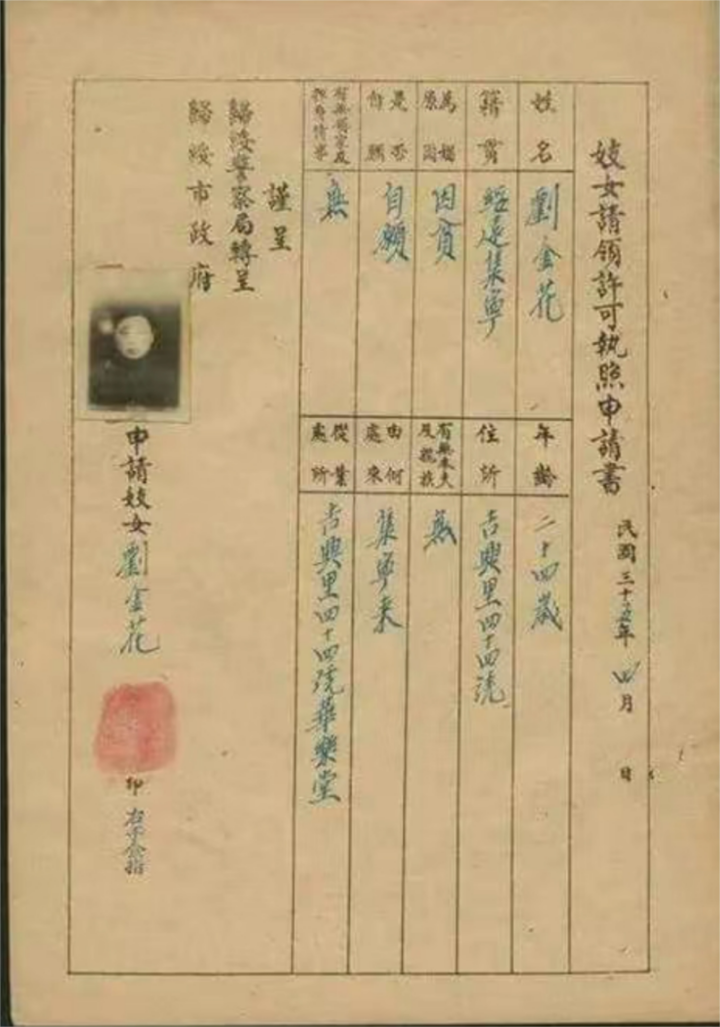 妓女請領許可執照申請書
民國三十五年 四月 日
姓名 劉金花
年齡 二十四歲
籍貫 綏遠集寧
住所 吉興里四十四號
為娼原因 因貧
有無本夫及親族 無
是否自願 自願
由何處來 集寧來
有無領家及 無
從業處所 吉興里四十四號華樂堂
謹呈
歸綏警察局轉呈
歸綏市政府
申請妓女 劉金花
印 右手食指